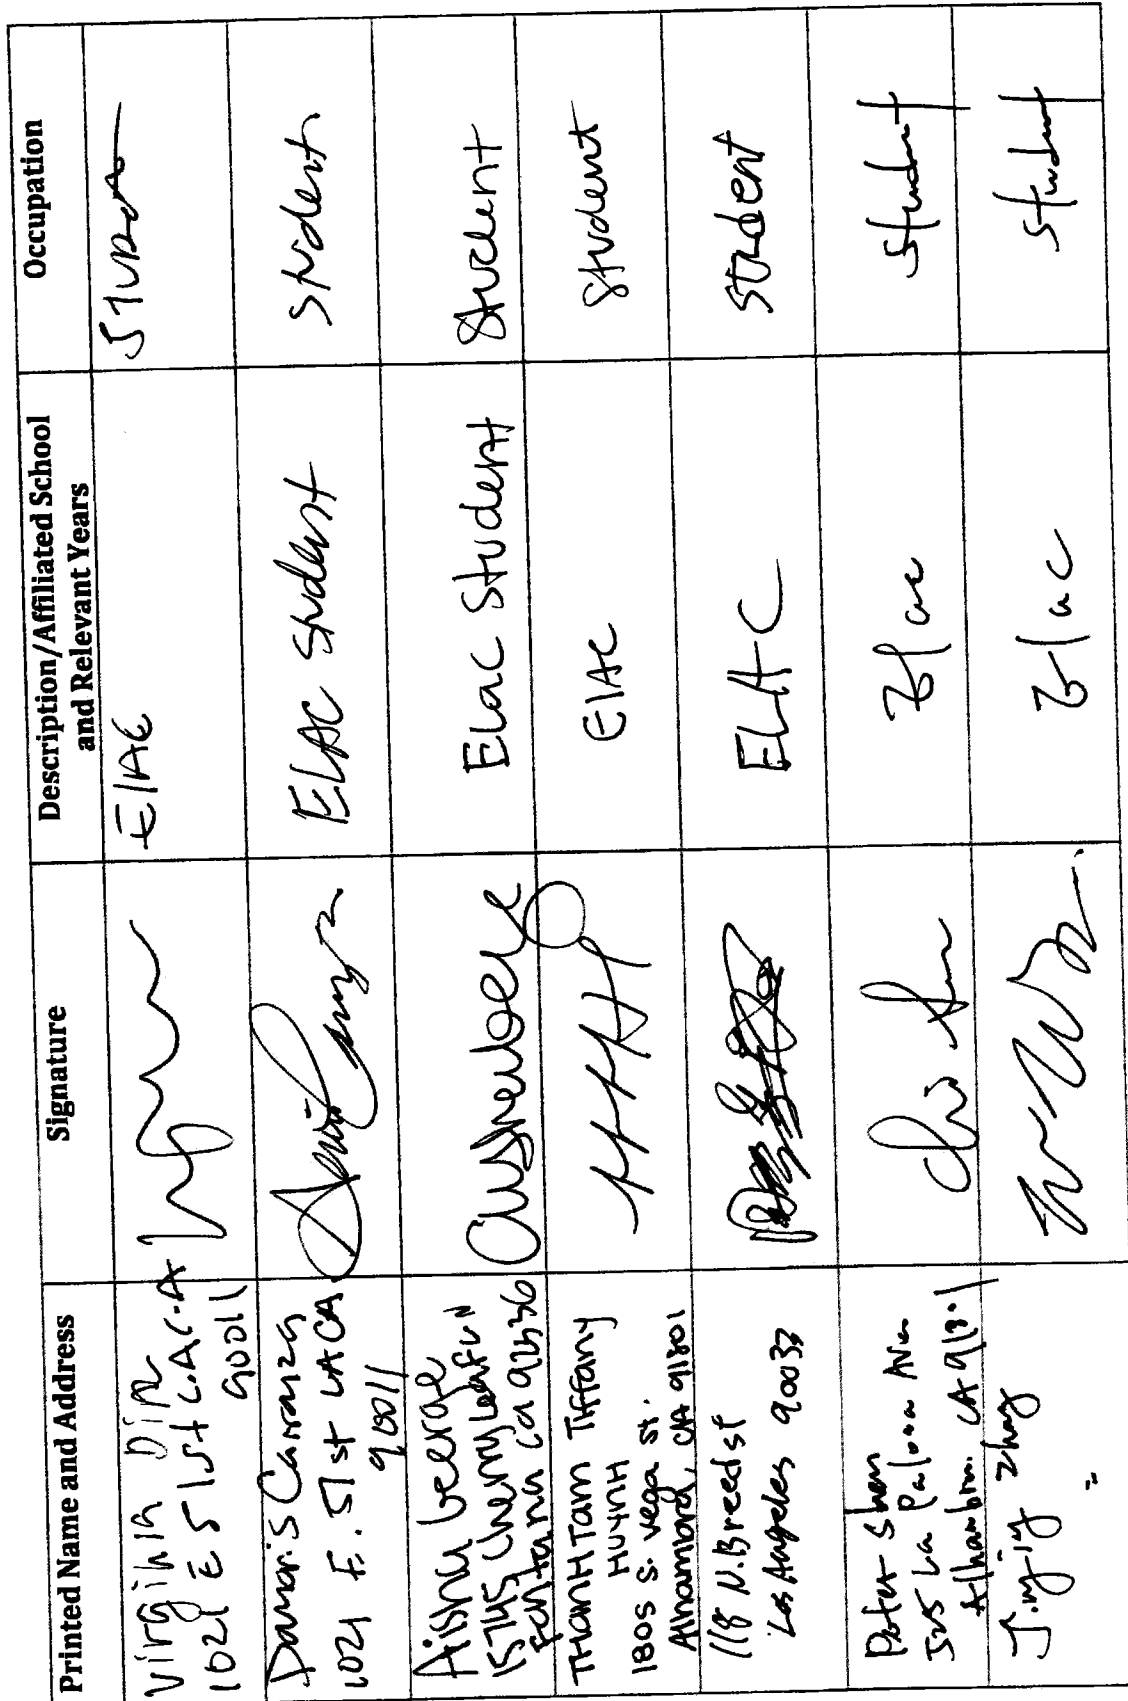 Printed Name and Address
Signature
Description/Affiliated School
and Relevant Years
Occupation
Virginia
1021 E 51st L.A C.A
90011
ElAC
Damaris Carranza
1021 E. 51st LA CA
90011
ELAC Student
Student
Aisha
15745 Cherry leaf LN
Fontana Ca 92336
Elac Student
Student
THANH Tam Tiffany
HUYNH
1805 S. vega st.
Alhambra, CA 91801
ElAC
Student
118 N. Breed st
Los Angeles 90033
ELAC
Student
Peter Shen
La Paloma Ave
Alhambra. CA 91801
Elac
student
Zhang
"
Elac
student